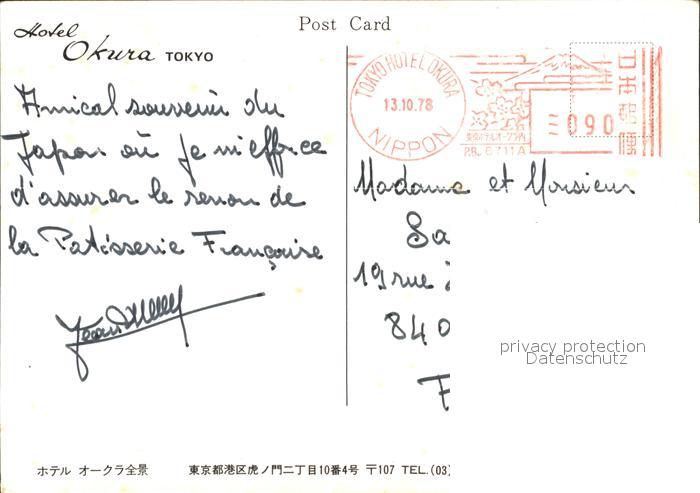 Post Card
Hotel
Okura TOKYO
Amical souvenir du
Japon où je m'efforce
d'assurer le renom de
la Patisserie Française
TOKYO HOTEL OKURA
13.10.78
NIPPON
東京ホテルオークラ内
P.B. 6711A
090
日本郵便
Madame et Monsieur
Sa
19 rue
840
F
privacy protection
Datenschutz
ホテル オークラ全景 東京都港区虎ノ門二丁目10番4号 〒107 TEL.(03)